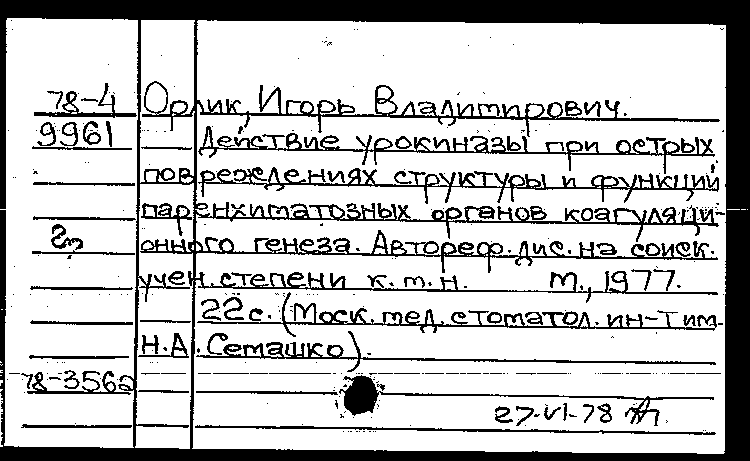 78-4 Орлик, Игорь Владимирович.
9961 Действие урокиназы при острых
повреждениях структуры и функций
паренхиматозных органов коагуляци-
онного генеза. Автореф. дис. на соиск.
учен. степени к. м. н. М., 1977.
22 с. (Моск. мед. стоматол. ин-т им.
Н.А. Семашко).
78-356
27-VI-78